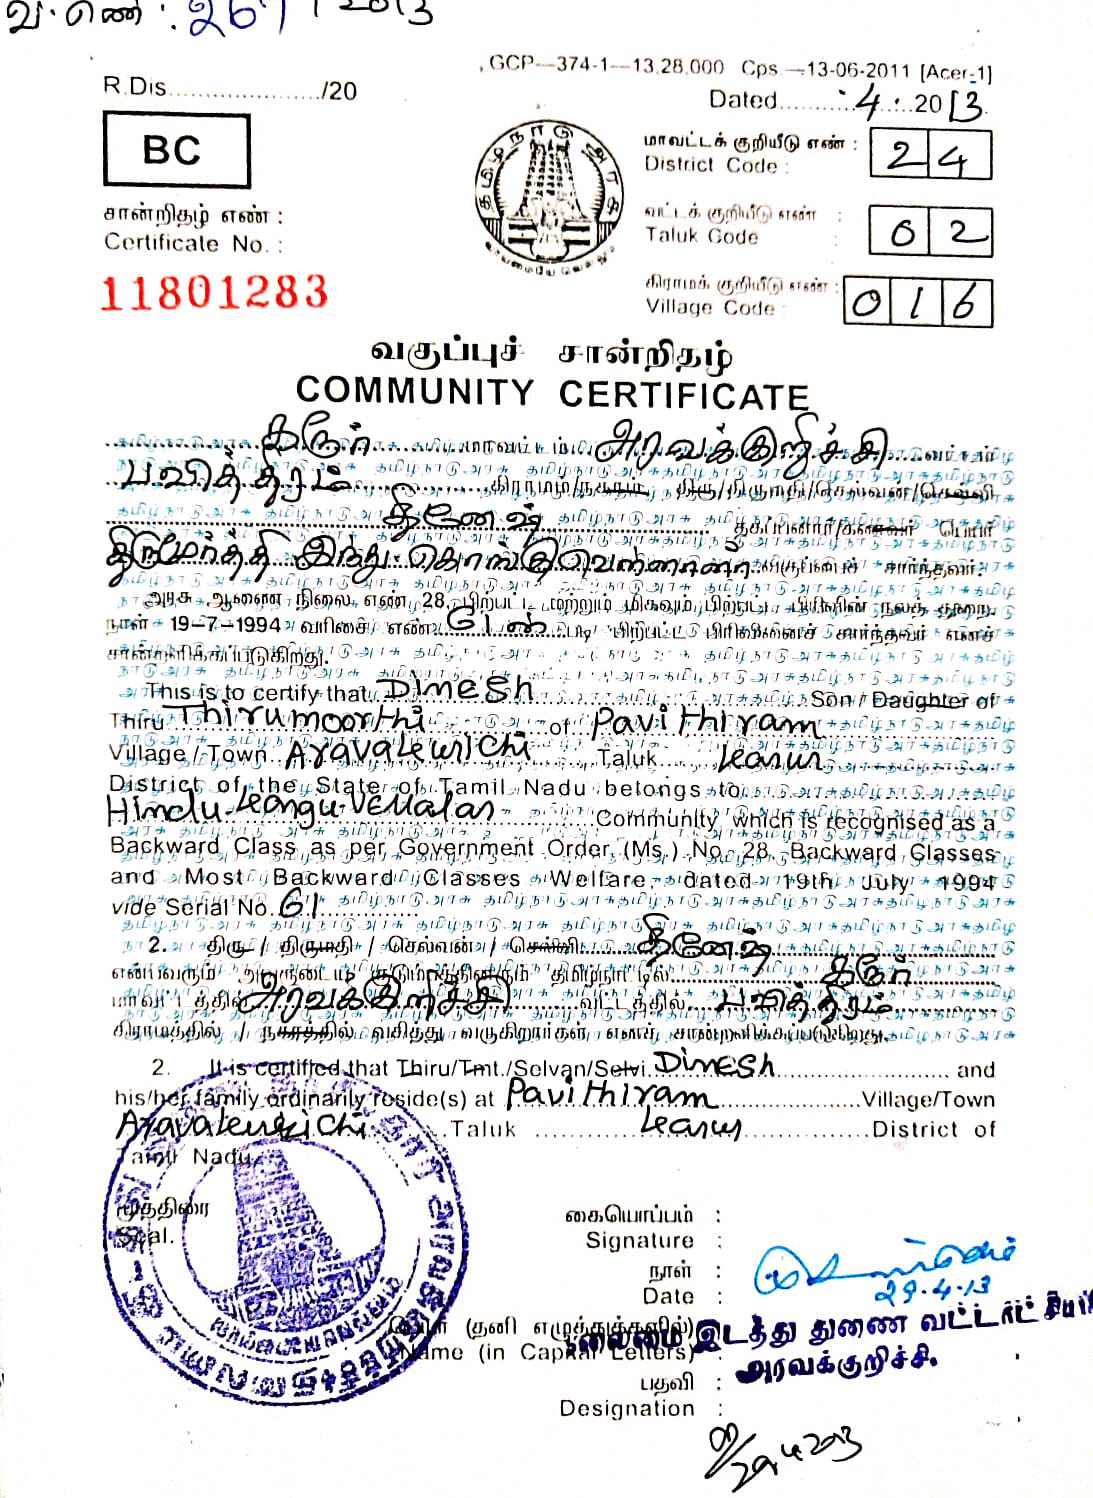 வ.எண்: 267/2013
GCP—374-1—13,28,000 Cps.—13-06-2011 [Acer-1]
R.Dis......................./20
Dated..........4..2013.
BC
மாவட்டக் குறியீடு எண் : 24
District Code :
சான்றிதழ் எண் :
Certificate No. :
வட்டக் குறியீடு எண் : 02
Taluk Code :
11801283
கிராமக் குறியீடு எண் : 016
Village Code :
தமிழ்நாடு அரசு
வாய்மையே வெல்லும்
வகுப்புச் சான்றிதழ்
COMMUNITY CERTIFICATE
கரூர் மாவட்டம் அரவக்குறிச்சி வட்டம்
பவித்திரம் கிராமம்/நகரம், திரு/திருமதி/செல்வன்/செல்வி
தினேஷ் தகப்பனார்/கணவர் பெயர்
திருமூர்த்தி இந்து கொங்குவெள்ளாளர் வகுப்பைச் சார்ந்தவர்.
அரசு ஆணை நிலை எண் 28, பிற்பட்ட மற்றும் மிகவும் பிற்பட்ட பிரிவின் நலத் துறை,
நாள் 19-7-1994 வரிசை எண் 61ன் படி பிற்பட்ட பிரிவினைச் சார்ந்தவர் எனச்
சான்றளிக்கப்படுகிறது.
This is to certify that Dinesh Son / Daughter of
Thiru Thirumoorthi of Pavithiram
Village / Town Aravakurichi Taluk Karur
District of the State of Tamil Nadu belongs to
Hindu-Kongu-Vellalar Community which is recognised as a
Backward Class as per Government Order (Ms.) No. 28, Backward Classes
and Most Backward Classes Welfare, dated 19th July 1994
vide Serial No. 61
2. திரு / திருமதி / செல்வன் / செல்வி தினேஷ்
என்பவரும் அவருடைய குடும்பத்தினரும் தமிழ்நாட்டில் கரூர்
மாவட்டத்தில் அரவக்குறிச்சி வட்டத்தில் பவித்திரம்
கிராமத்தில் / நகரத்தில் வசித்து வருகிறார்கள் எனச் சான்றளிக்கப்படுகிறது.
2. It is certified that Thiru/Tmt./Selvan/Selvi Dinesh and
his/her family ordinarily reside(s) at Pavithiram Village/Town
Aravakurichi Taluk Karur District of
Tamil Nadu.
முத்திரை
Seal.
கையொப்பம் :
Signature :
நாள் :
Date : 29.4.13
பெயர் (தனி எழுத்துக்களில்)
Name (in Capital Letters) :
தலைமை இடத்து துணை வட்டாட்சியர்
அரவக்குறிச்சி.
பதவி :
Designation :
29/4/2013